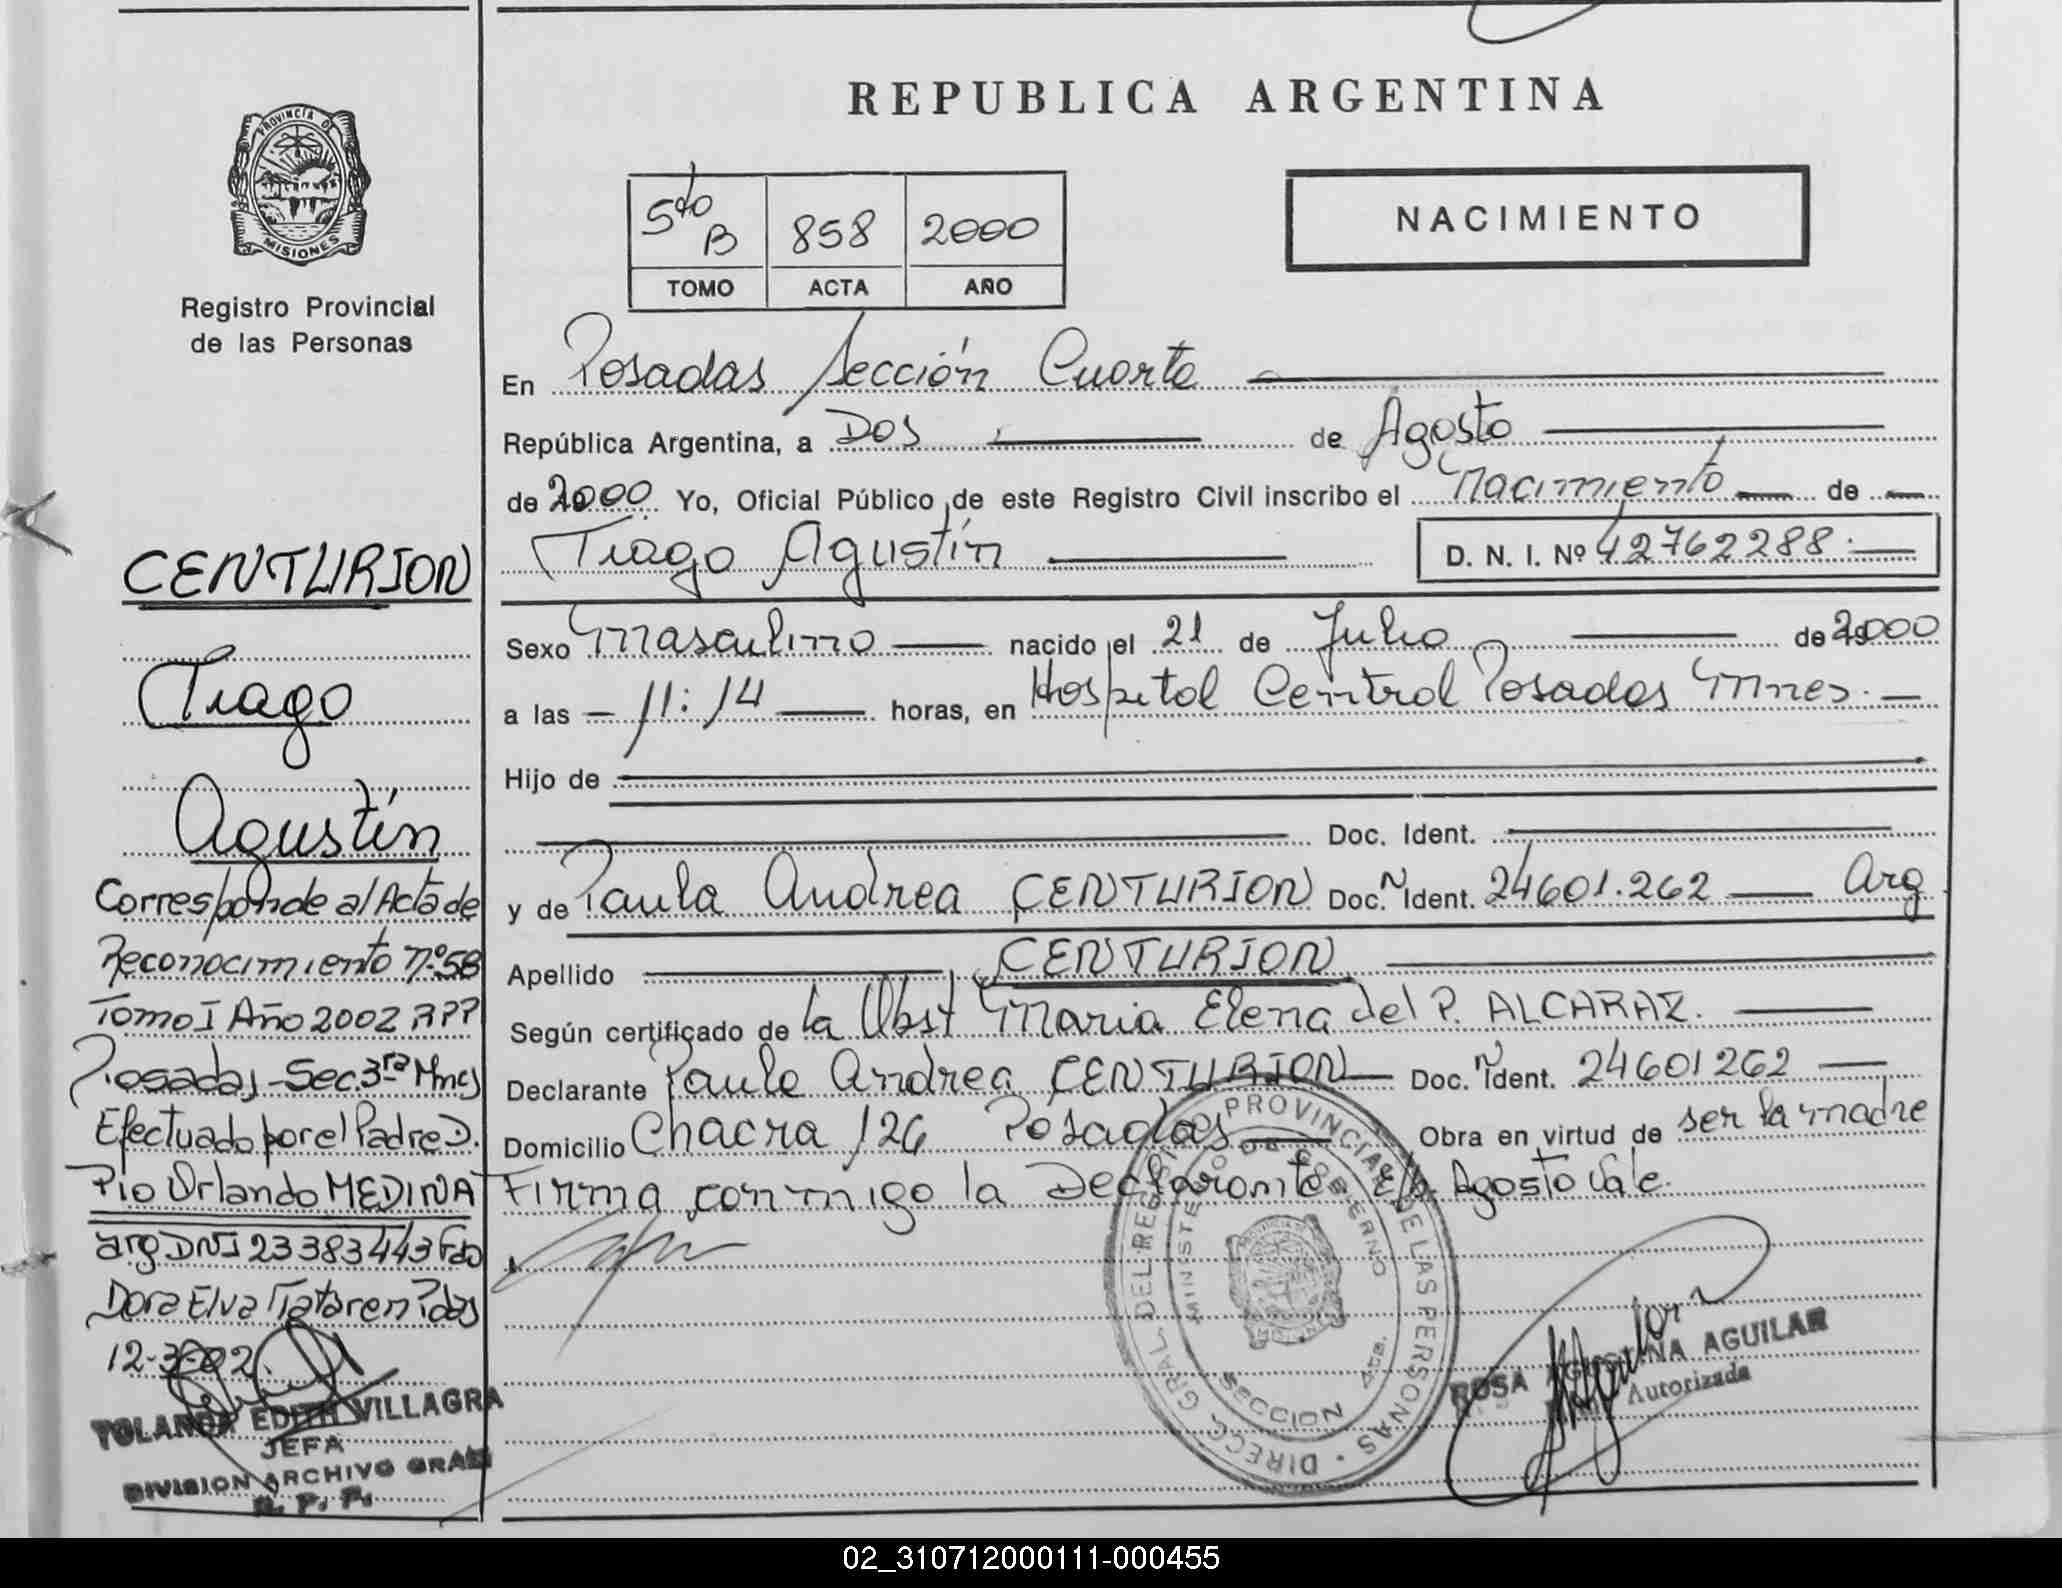 REPUBLICA ARGENTINA
PROVINCIA DE
MISIONES
Registro Provincial
de las Personas
5to B 858 2000
TOMO ACTA AÑO
NACIMIENTO
En Posadas Sección Cuarta
República Argentina, a Dos de Agosto
de 2000 Yo, Oficial Público de este Registro Civil inscribo el Nacimiento de
Tiago Agustín D. N. I. Nº 42762288.
Sexo Masculino nacido el 21 de Julio de 2000
a las 11:14 horas, en Hospital Central Posadas Mnes.
Hijo de
Doc. Ident.
y de Paula Andrea CENTURION Doc. N Ident. 24601.262 Arg
Apellido CENTURION
Según certificado de la Obst Maria Elena del P. ALCARAZ.
Declarante Paula Andrea CENTURION Doc. N Ident. 24601262
Domicilio Chacra 126 Posadas Obra en virtud de ser la madre
Firma conmigo la Declarante E/l Agosto Vale.
CENTURION
Tiago
Agustín
Corresponde al Acta de
Reconocimiento Nº 58
Tomo I Año 2002 RPP
Posadas-Sec.3ra Mnes
Efectuado por el Padre D.
Pio Orlando MEDINA
arg DNI 23383443 Fdo
Dora Elva Tataren Pdas
12-3-02
YOLANDA EDITH VILLAGRA
JEFA
DIVISION ARCHIVO GRAL
R. P. P.
DIRECC. GRAL. DEL REGISTRO PROVINCIAL DE LAS PERSONAS
MINISTERIO DE GOBIERNO
SECCION 4ta.
ROSA AGUSTINA AGUILAR
Autorizada
02_310712000111-000455